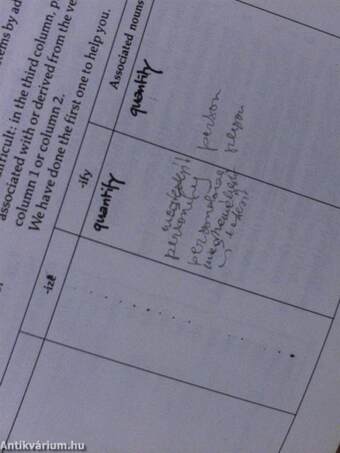 tems by ad
fficult: in the third column, p
associated with or derived from the ve
column 1 or column 2.
We have done the first one to help you.
-ize
-ify
Associated nouns
quantify
quantity
personify
person
person
Antikvárium.hu